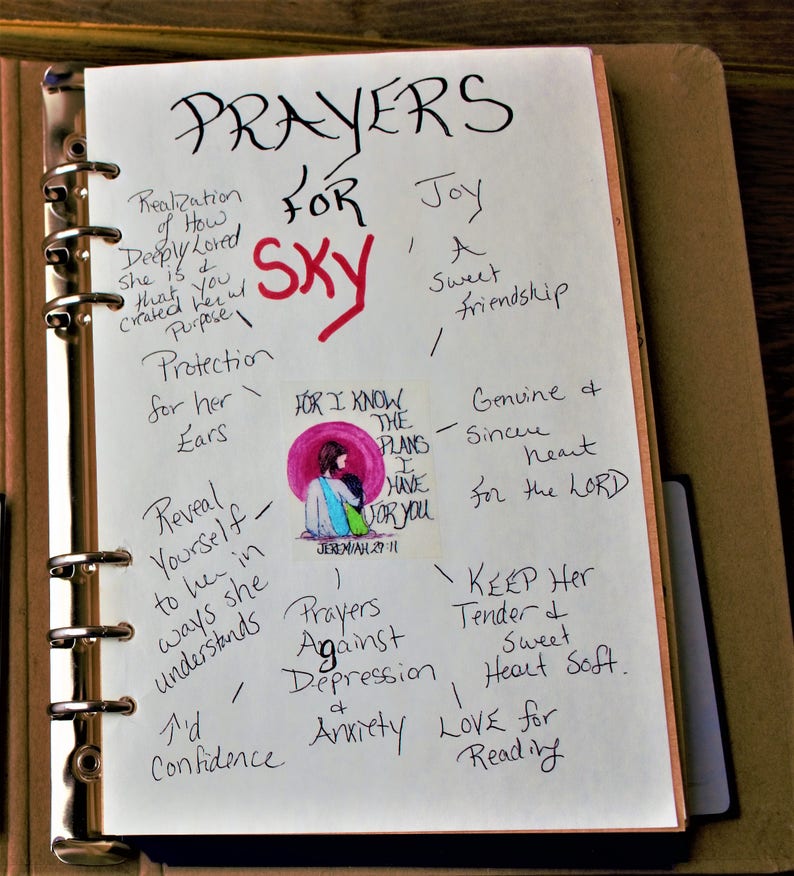 PRAYERS
FOR
SKY
Realization
of How
Deeply Loved
she is &
that you
created her w/
Purpose
Protection
for her
Ears
Reveal
Yourself
to her in
ways she
understands
↑'d
Confidence
Prayers
Against
Depression
&
Anxiety
Joy
A
Sweet
friendship
Genuine &
Sincere
heart
for the LORD
KEEP Her
Tender &
Sweet
Heart Soft.
LOVE for
Reading
FOR I KNOW
THE
PLANS
I
HAVE
FOR YOU
JEREMIAH 29:11